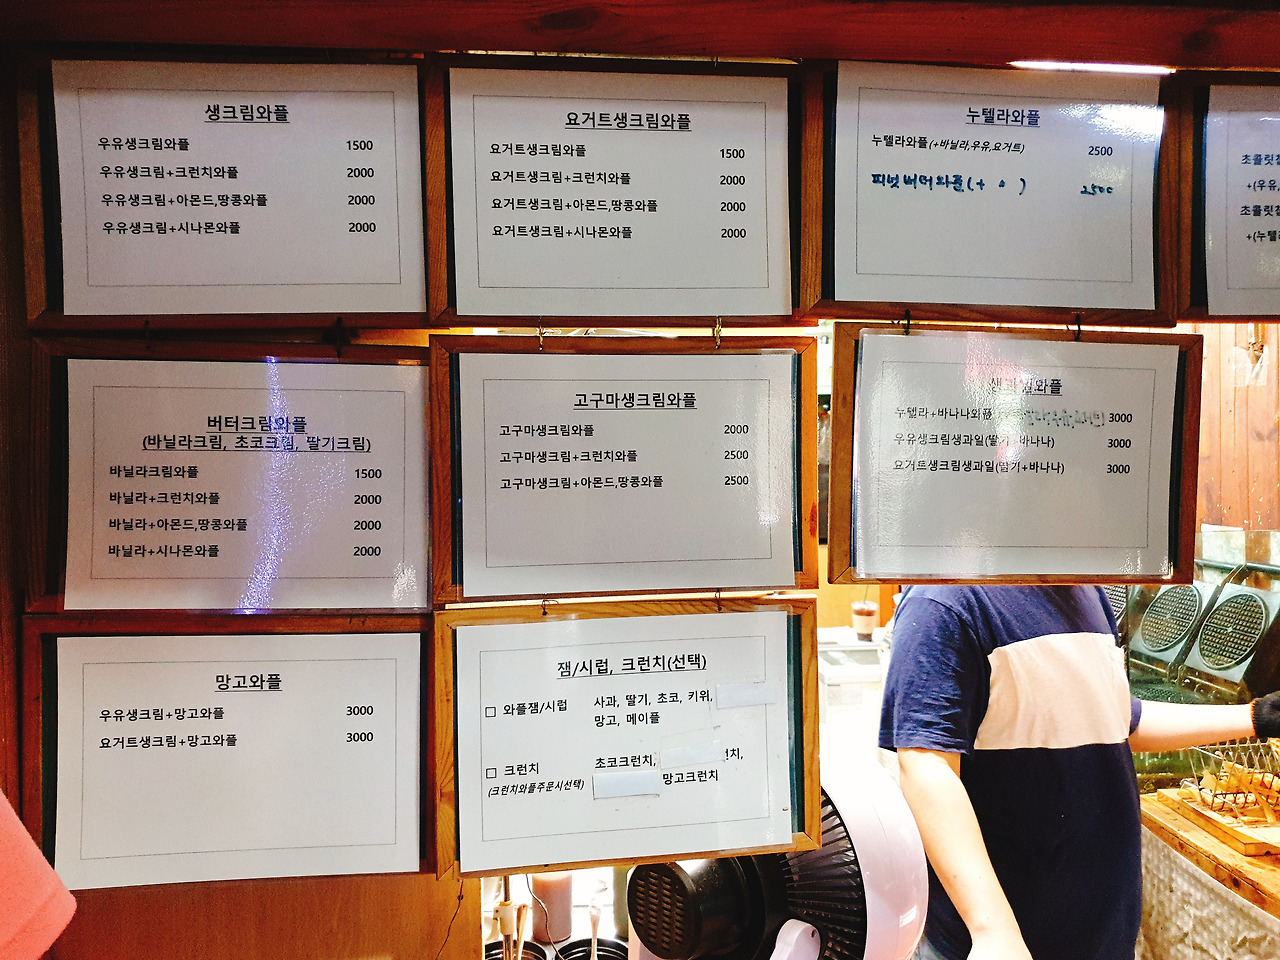 생크림와플
우유생크림와플 1500
우유생크림+크런치와플 2000
우유생크림+아몬드,땅콩와플 2000
우유생크림+시나몬와플 2000
요거트생크림와플
요거트생크림와플 1500
요거트생크림+크런치와플 2000
요거트생크림+아몬드,땅콩와플 2000
요거트생크림+시나몬와플 2000
누텔라와플
누텔라와플(+바닐라,우유,요거트) 2500
피넛버터와플(+ ) 2500
초콜릿
+(우유,
초콜릿
+(누텔라
버터크림와플
(바닐라크림, 초코크림, 딸기크림)
바닐라크림와플 1500
바닐라+크런치와플 2000
바닐라+아몬드,땅콩와플 2000
바닐라+시나몬와플 2000
고구마생크림와플
고구마생크림와플 2000
고구마생크림+크런치와플 2500
고구마생크림+아몬드,땅콩와플 2500
생과일와플
누텔라+바나나와플 3000
우유생크림생과일(딸기+바나나) 3000
요거트생크림생과일(딸기+바나나) 3000
망고와플
우유생크림+망고와플 3000
요거트생크림+망고와플 3000
잼/시럽, 크런치(선택)
□ 와플잼/시럽 사과, 딸기, 초코, 키위,
망고, 메이플
□ 크런치 초코크런치, 치,
(크런치와플주문시선택) 망고크런치